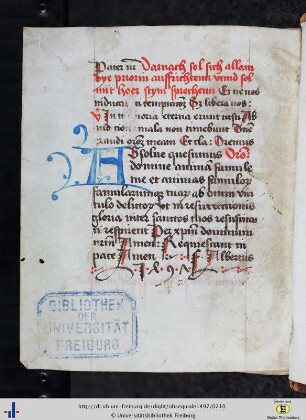 Pater nr̄ Darnach sol sich allain
dye priorin auffrichtenn vnnd sol
mit hoer stym sprechenn Et ne nos
inducas in temptationē Sz libera nos:
V In memoria eterna erunt iusti Ab
auditione mala non timebunt Dn̄e
exaudi orōem meam Et cla: Oremus
Absolue quesumus Oro:
domine animā famule
tue et animas famulor
famularumque tuarꝝ ab omni vin
culo delictorꝝ vt in resurrectionis
gloria inter sanctos tuos resuscitati
respirent Per xp̄m dominum
nr̄m Amen: Requiescant in
pace Amen f. Albertus
1 4 9 7
BIBLIOTHEK
DER
UNIVERSITÄT
FREIBURG
http://dl.ub.uni-freiburg.de/diglit/obsequiale1497/0210
© Universitätsbibliothek Freiburg